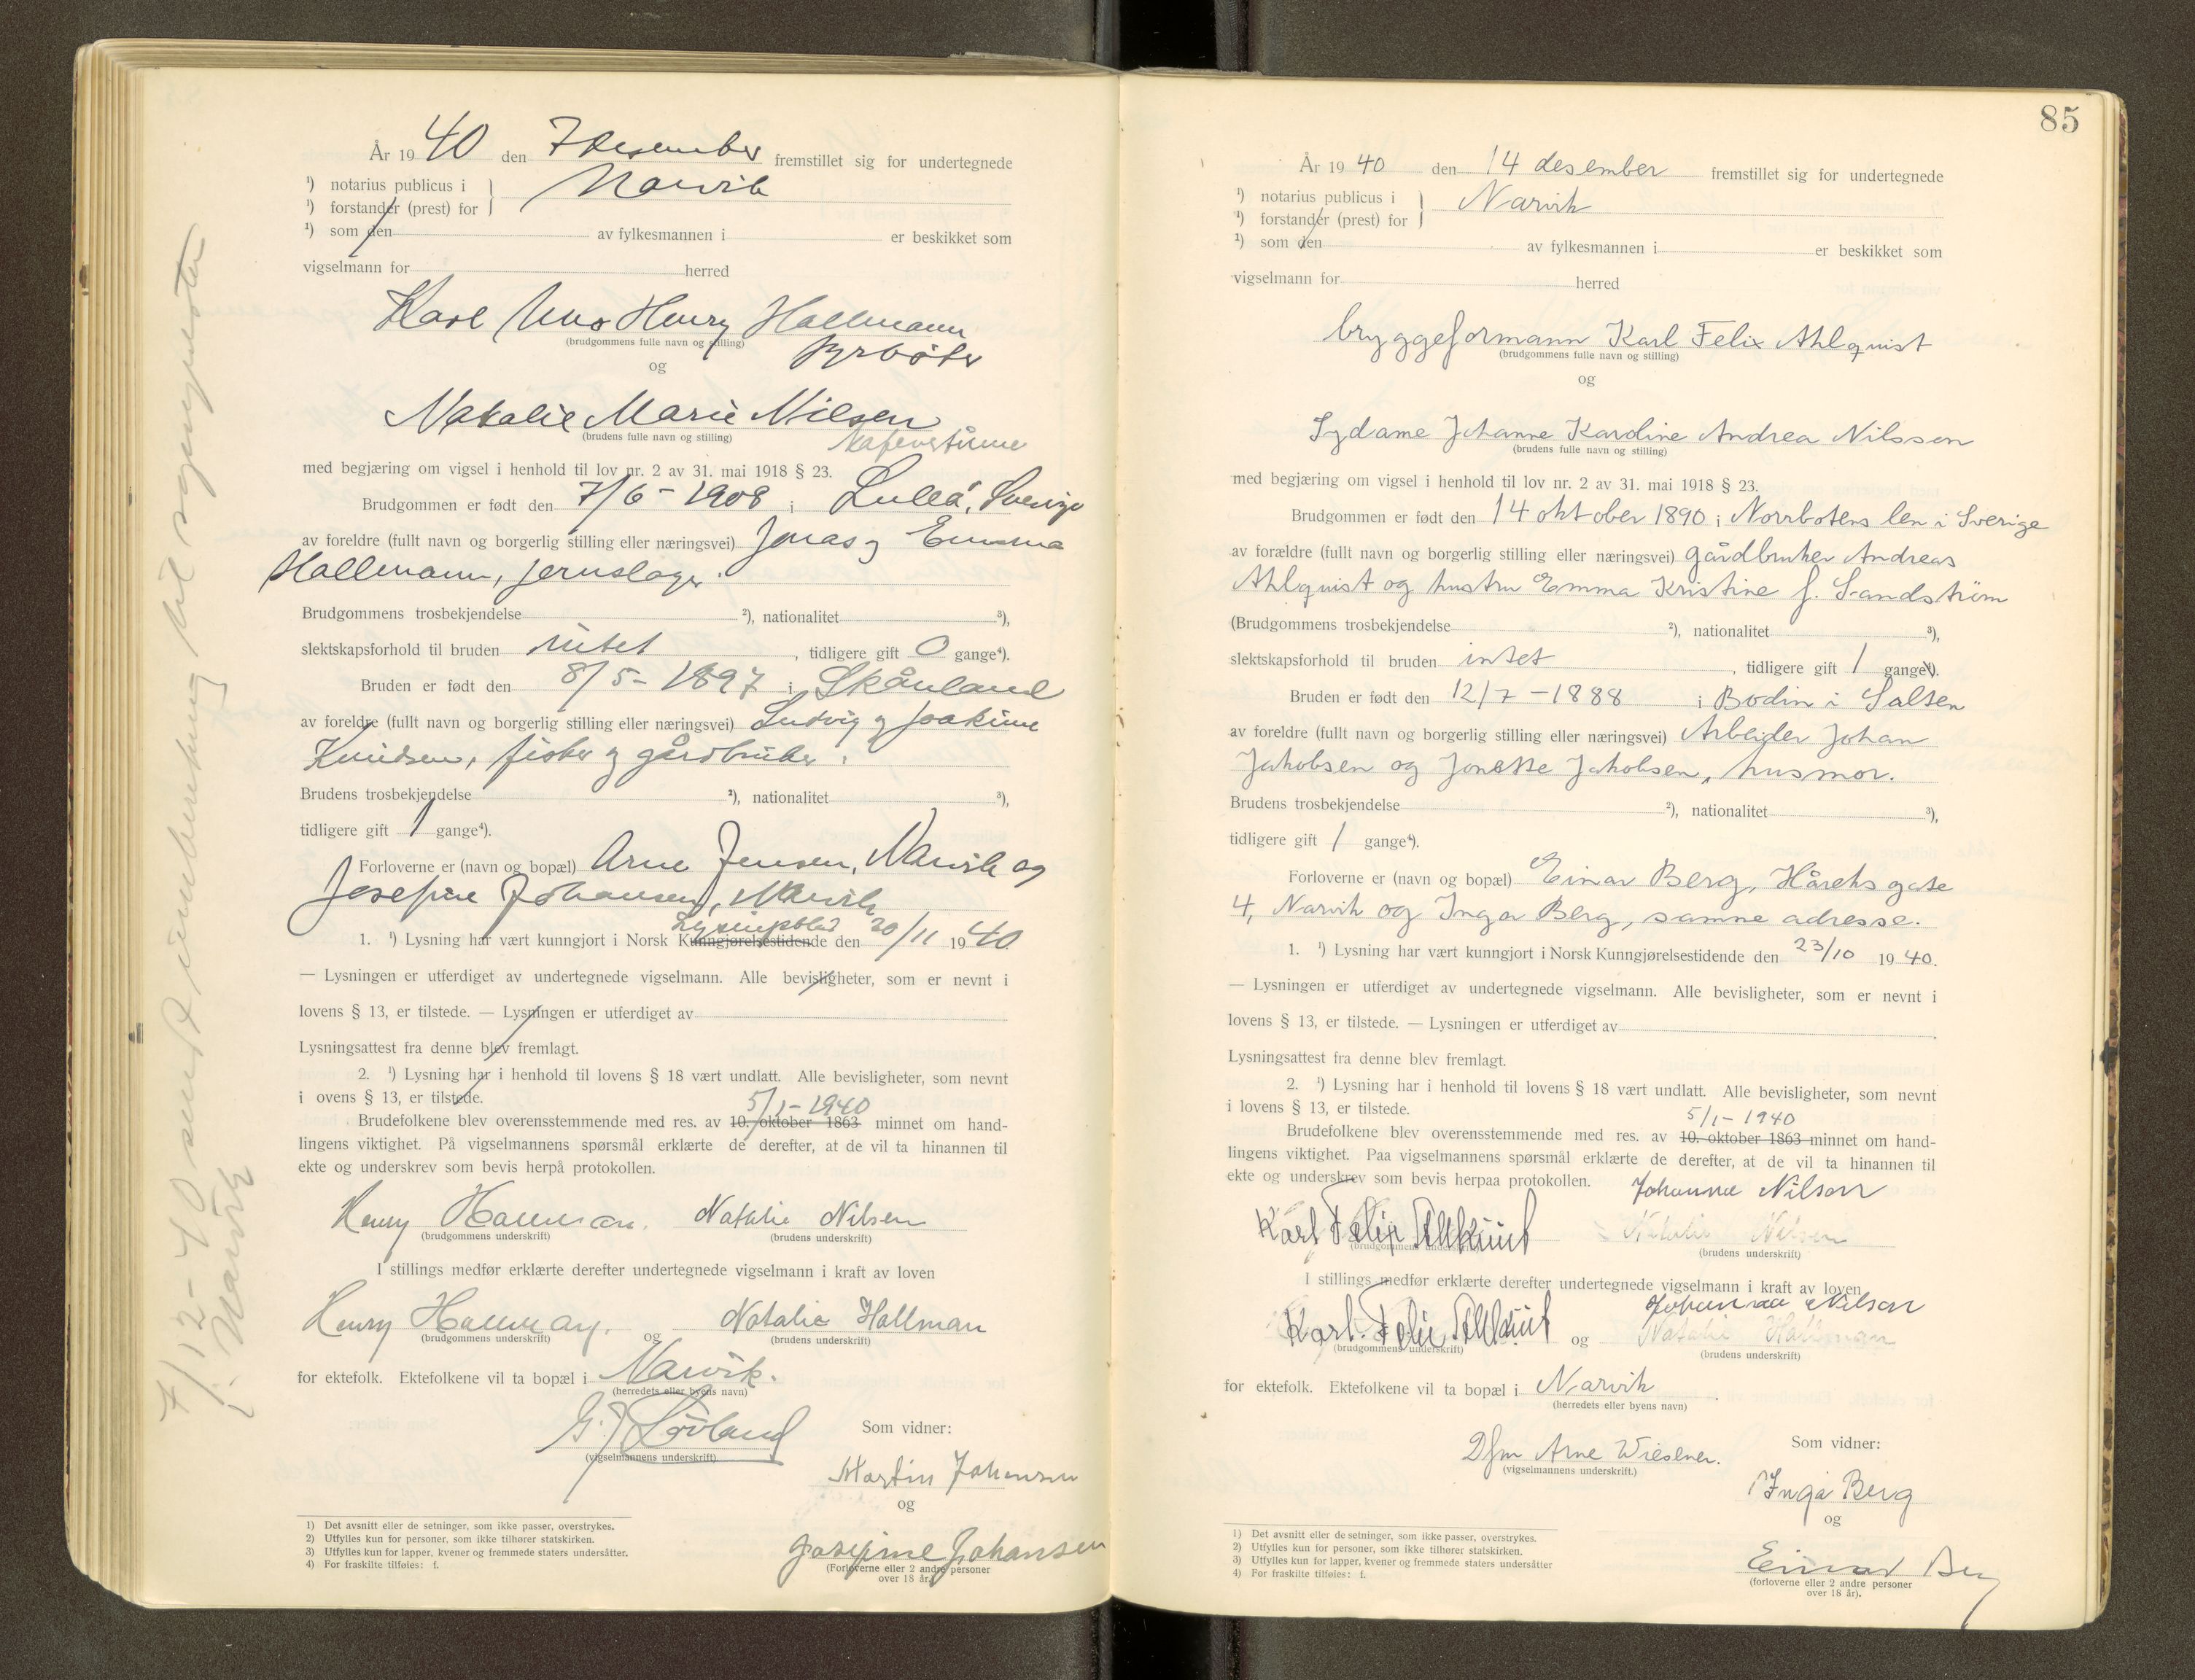 År 1940 den 7 desember fremstillet sig for undertegnede
¹) notarius publicus i } Narvik
¹) forstander (prest) for
¹) som den av fylkesmannen i er beskikket som
vigselmann for herred
Karl Uno Henry Hallmann
(brudgommens fulle navn og stilling)
Fyrbøter
og
Natalie Marie Nilsen
(brudens fulle navn og stilling)
med begjæring om vigsel i henhold til lov nr. 2 av 31. mai 1918 § 23.
Brudgommen er født den 7/6 - 1908 i Luleå, Sverige
av foreldre (fullt navn og borgerlig stilling eller næringsvei) Jonas og Emma
Hallmann, jernslager.
Brudgommens trosbekjendelse ²), nationalitet ³),
slektskapsforhold til bruden intet, tidligere gift 0 gange⁴).
Bruden er født den 8/5 - 1897 i Skånland
av foreldre (fullt navn og borgerlig stilling eller næringsvei) Ludvig og Joakime
Knudsen, fisker og gårdbruker.
Brudens trosbekjendelse ²), nationalitet ³),
tidligere gift 1 gange⁴).
Forloverne er (navn og bopæl) Arne Jensen, Narvik og
Josefine Johansen, Narvik
Lysingsblad
1. ¹) Lysning har vært kunngjort i Norsk Kunngjørelsestidende den 20/11 1940
— Lysningen er utferdiget av undertegnede vigselmann. Alle bevisligheter, som er nevnt i
lovens § 13, er tilstede. — Lysningen er utferdiget av
Lysningsattest fra denne blev fremlagt.
2. ¹) Lysning har i henhold til lovens § 18 vært undlatt. Alle bevisligheter, som nevnt
i ovens § 13, er tilstede.
5/1 - 1940
Brudefolkene blev overensstemmende med res. av 10. oktober 1863 minnet om hand-
lingens viktighet. På vigselmannens spørsmål erklærte de derefter, at de vil ta hinannen til
ekte og underskrev som bevis herpå protokollen.
Henry Hallman. Natalie Nilsen
(brudgommens underskrift) (brudens underskrift)
I stillings medfør erklærte derefter undertegnede vigselmann i kraft av loven
Henry Hallman. og Natalie Hallman
(brudgommens underskrift) (brudens underskrift)
for ektefolk. Ektefolkene vil ta bopæl i Narvik.
(herredets eller byens navn)
G. J. Løvland
(vigselmannens underskrift)
Som vidner:
Martin Johansen
og
Josefine Johansen
(Forloverne eller 2 andre personer
over 18 år.)
1) Det avsnitt eller de setninger, som ikke passer, overstrykes.
2) Utfylles kun for personer, som ikke tilhører statskirken.
3) Utfylles kun for lapper, kvener og fremmede staters undersåtter.
4) For fraskilte tilføies: f.
7/12-40 sendt innberetning til sognepresten
i Narvik
85
År 1940 den 14 desember fremstillet sig for undertegnede
¹) notarius publicus i } Narvik
¹) forstander (prest) for
¹) som den av fylkesmannen i er beskikket som
vigselmann for herred
bryggeformann Karl Felix Ahlquist
(brudgommens fulle navn og stilling)
og
Sydame Johanne Karoline Andrea Nilssen
(brudens fulle navn og stilling)
med begjæring om vigsel i henhold til lov nr. 2 av 31. mai 1918 § 23.
Brudgommen er født den 14 oktober 1890 i Norrbotens len i Sverige
av forældre (fullt navn og borgerlig stilling eller næringsvei) gårdbruker Andreas
Ahlquist og hustru Emma Kristine f. Sandström
(Brudgommens trosbekjendelse ²), nationalitet ³),
slektskapsforhold til bruden intet, tidligere gift 1 gange⁴).
Bruden er født den 12/7 - 1888 i Bodin i Salten
av foreldre (fullt navn og borgerlig stilling eller næringsvei) Arbeider Johan
Jakobsen og Jonette Jakobsen, husmor.
Brudens trosbekjendelse ²), nationalitet ³),
tidligere gift 1 gange⁴).
Forloverne er (navn og bopæl) Einar Berg, Håreks gate
4, Narvik og Inga Berg, samme adresse.
1. ¹) Lysning har vært kunngjort i Norsk Kunngjørelsestidende den 23/10 1940.
— Lysningen er utferdiget av undertegnede vigselmann. Alle bevisligheter, som er nevnt i
lovens § 13, er tilstede. — Lysningen er utferdiget av
Lysningsattest fra denne blev fremlagt.
2. ¹) Lysning har i henhold til lovens § 18 vært undlatt. Alle bevisligheter, som nevnt
i lovens § 13, er tilstede.
5/1 - 1940
Brudefolkene blev overensstemmende med res. av 10. oktober 1863 minnet om hand-
lingens viktighet. Paa vigselmannens spørsmål erklærte de derefter, at de vil ta hinannen til
ekte og underskrev som bevis herpaa protokollen. Johanne Nilsen
Karl Felix Ahlkuist Natalie Nilsen
(brudgommens underskrift) (brudens underskrift)
I stillings medfør erklærte derefter undertegnede vigselmann i kraft av loven
Johanna Nilsen
Karl Felix Ahlkuist og Natalie Hallman
(brudgommens underskrift) (brudens underskrift)
for ektefolk. Ektefolkene vil ta bopæl i Narvik.
(herredets eller byens navn)
Dfm Arne Wiesener.
(vigselmannens underskrift.)
Som vidner:
Inga Berg
og
Einar Berg
(forloverne eller 2 andre personer
over 18 år).
1) Det avsnitt eller de setninger, som ikke passer, overstrykes.
2) Utfylles kun for personer, som ikke tilhører statskirken.
3) Utfylles kun for lapper, kvener og fremmede staters undersåtter
4) For fraskilte tilføies: f.